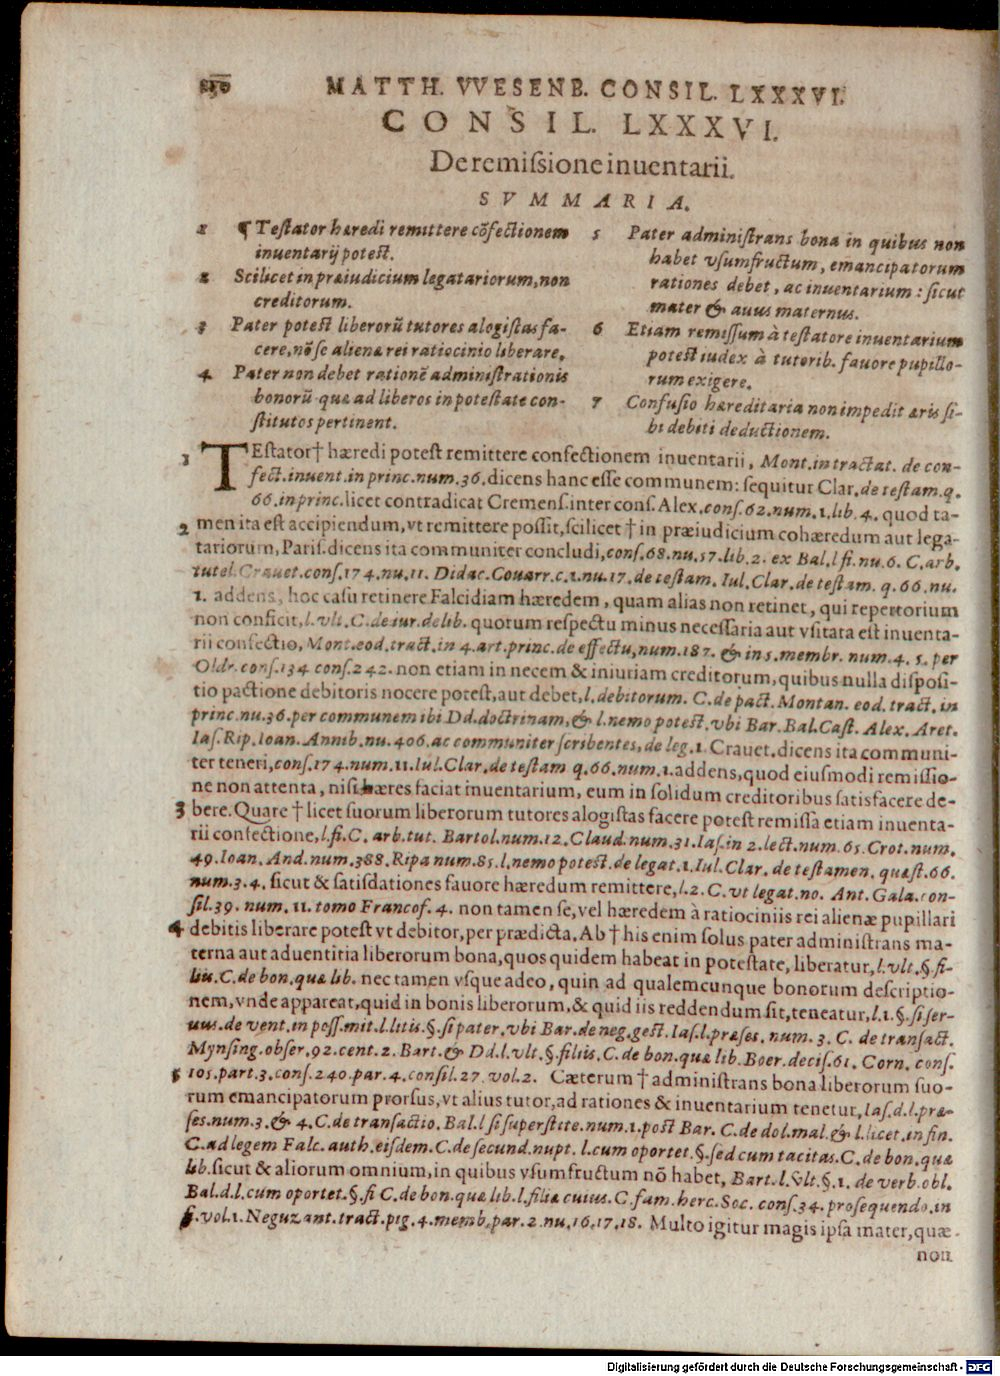 MATTH. VVESENB. CONSIL. LXXXVI.
CONSIL. LXXXVI.
De remiſsione inuentarii.
SVMMARIA.
1 ¶ Teſtator hæredi remittere cõfectionem
inuentarij poteſt.
2 Scilicet in præiudicium legatariorum, non
creditorum.
3 Pater poteſt liberorũ tutores alogiſtas fa-
cere, nõ ſe alienæ rei ratiocinio liberare.
4 Pater non debet rationẽ adminiſtrationis
bonorũ quæ ad liberos in poteſtate con-
ſtitutos pertinent.
5 Pater adminiſtrans bona in quibus non
habet vſumfructum, emancipatorum
rationes debet, ac inuentarium: ſicut
mater & auus maternus.
6 Etiam remiſſum à teſtatore inuentarium
poteſt iudex à tutorib. fauore pupillo-
rum exigere.
7 Confuſio hæreditaria non impedit æris ſi-
bi debiti deductionem.
1 TEſtator† hæredi poteſt remittere confectionem inuentarii, Mont. in tractat. de con-
fect. inuent. in princ. num. 36. dicens hanc eſſe communem: ſequitur Clar. de teſtam. q.
66. in princ. licet contradicat Cremenſ. inter conſ. Alex. conſ. 62. num. 1. lib. 4. quod ta-
2 men ita est accipiendum, vt remittere poſſit, ſcilicet † in præiudicium cohæredum aut lega-
tariorum, Pariſ. dicens ita communiter concludi, conſ. 68. nu. 57. lib. 2. ex Bal. l fi. nu. 6. C. arb.
tutel. Crauet. conſ. 174. nu. 11. Didac. Couarr. c. 1. nu. 17. de teſtam. Iul. Clar. de teſtam. q. 66. nu.
1. addens, hoc caſu retinere Falcidiam hæredem, quam alias non retinet, qui repertorium
non conficit, l. vlt. C. de iur. delib. quorum reſpectu minus neceſſaria aut vſitata eſt inuenta-
rii confectio, Mont. eod. tract. in 4. art. princ. de effectu, num. 187. & in 5. membr. num. 4. 5. per
Oldr. conſ. 134 conſ. 242. non etiam in necem & iniuriam creditorum, quibus nulla diſpoſi-
tio pactione debitoris nocere poteſt, aut debet, l. debitorum. C. de pact. Montan. eod. tract. in
princ. nu. 36. per communem ibi Dd. doctrinam, & l. nemo poteſt. vbi Bar. Bal. Caſt. Alex. Aret.
Iaſ. Rip. Ioan. Annib. nu. 406. ac communiter ſcribentes, de leg. 1. Crauet. dicens ita communi-
ter teneri, conſ. 174. num. 11. Iul. Clar. de teſtam q. 66. num. 1. addens, quod eiuſmodi remiſſio-
ne non attenta, niſi hæres faciat inuentarium, eum in ſolidum creditoribus ſatisfacere de-
3 bere. Quare † licet ſuorum liberorum tutores alogiſtas facere poteſt remiſſa etiam inuenta-
rii confectione, l. fi. C. arb. tut. Bartol. num. 12. Claud. num. 31. Iaſ. in 2. lect. num. 65. Crot. num.
49. Ioan. And. num. 388. Ripa num. 85. l. nemo poteſt. de legat. 1. Iul. Clar. de teſtamen. quæſt. 66.
num. 3. 4. ſicut & ſatiſdationes fauore hæredum remittere, l. 2. C. vt legat. no. Ant. Gala. con-
ſil. 39. num. 11. tomo Francof. 4. non tamen ſe, vel hæredem à ratiociniis rei alienæ pupillari
4 debitis liberare poteſt vt debitor, per prædicta. Ab † his enim ſolus pater adminiſtrans ma-
terna aut aduentitia liberorum bona, quos quidem habeat in poteſtate, liberatur, l. vlt. §. fi-
lius. C. de bon. quæ lib. nec tamen vſque adeo, quin ad qualemcunque bonorum deſcriptio-
nem, vnde appareat, quid in bonis liberorum, & quid iis reddendum ſit, teneatur, l. 1. §. ſi ſer-
uus. de vent. in poſſ. mit. l. litis. §. ſi pater, vbi Bar. de neg. geſt. Iaſ. l. præſes. num. 3. C. de tranſact.
Mynſing. obſer. 92. cent. 2. Bart. & Dd. l. vlt. §. filiis. C. de bon. quæ lib. Boer. deciſ. 61. Corn. conſ.
5 105. part. 3. conſ. 240. par. 4. conſil. 27. vol. 2. Cæterum † adminiſtrans bona liberorum ſuo-
rum emancipatorum prorſus, vt alius tutor, ad rationes & inuentarium tenetur, Iaſ. d. l. præ-
ſes. num. 3. & 4. C. de tranſactio. Bal. l ſi ſuperſtite. num. 1. poſt Bar. C. de dol. mal. & l. licet. in fin.
C. ad legem Falc. auth. eiſdem. C. de ſecund. nupt. l. cum oportet. §. ſed cum tacitas. C. de bon. quæ
lib. ſicut & aliorum omnium, in quibus vſumfructum nõ habet, Bart. l. vlt. §. 1. de verb. obl.
Bal. d. l. cum oportet. §. fi C. de bon. quæ lib. l. filiæ cuius. C. fam. herc. Soc. conſ. 34. proſequendo. in
fi. vol. 1. Neguz ant. tract. pig. 4. memb. par. 2 nu. 16. 17. 18. Multo igitur magis ipſa mater, quæ
non
Digitalisierung gefördert durch die Deutsche Forschungsgemeinschaft - DFG